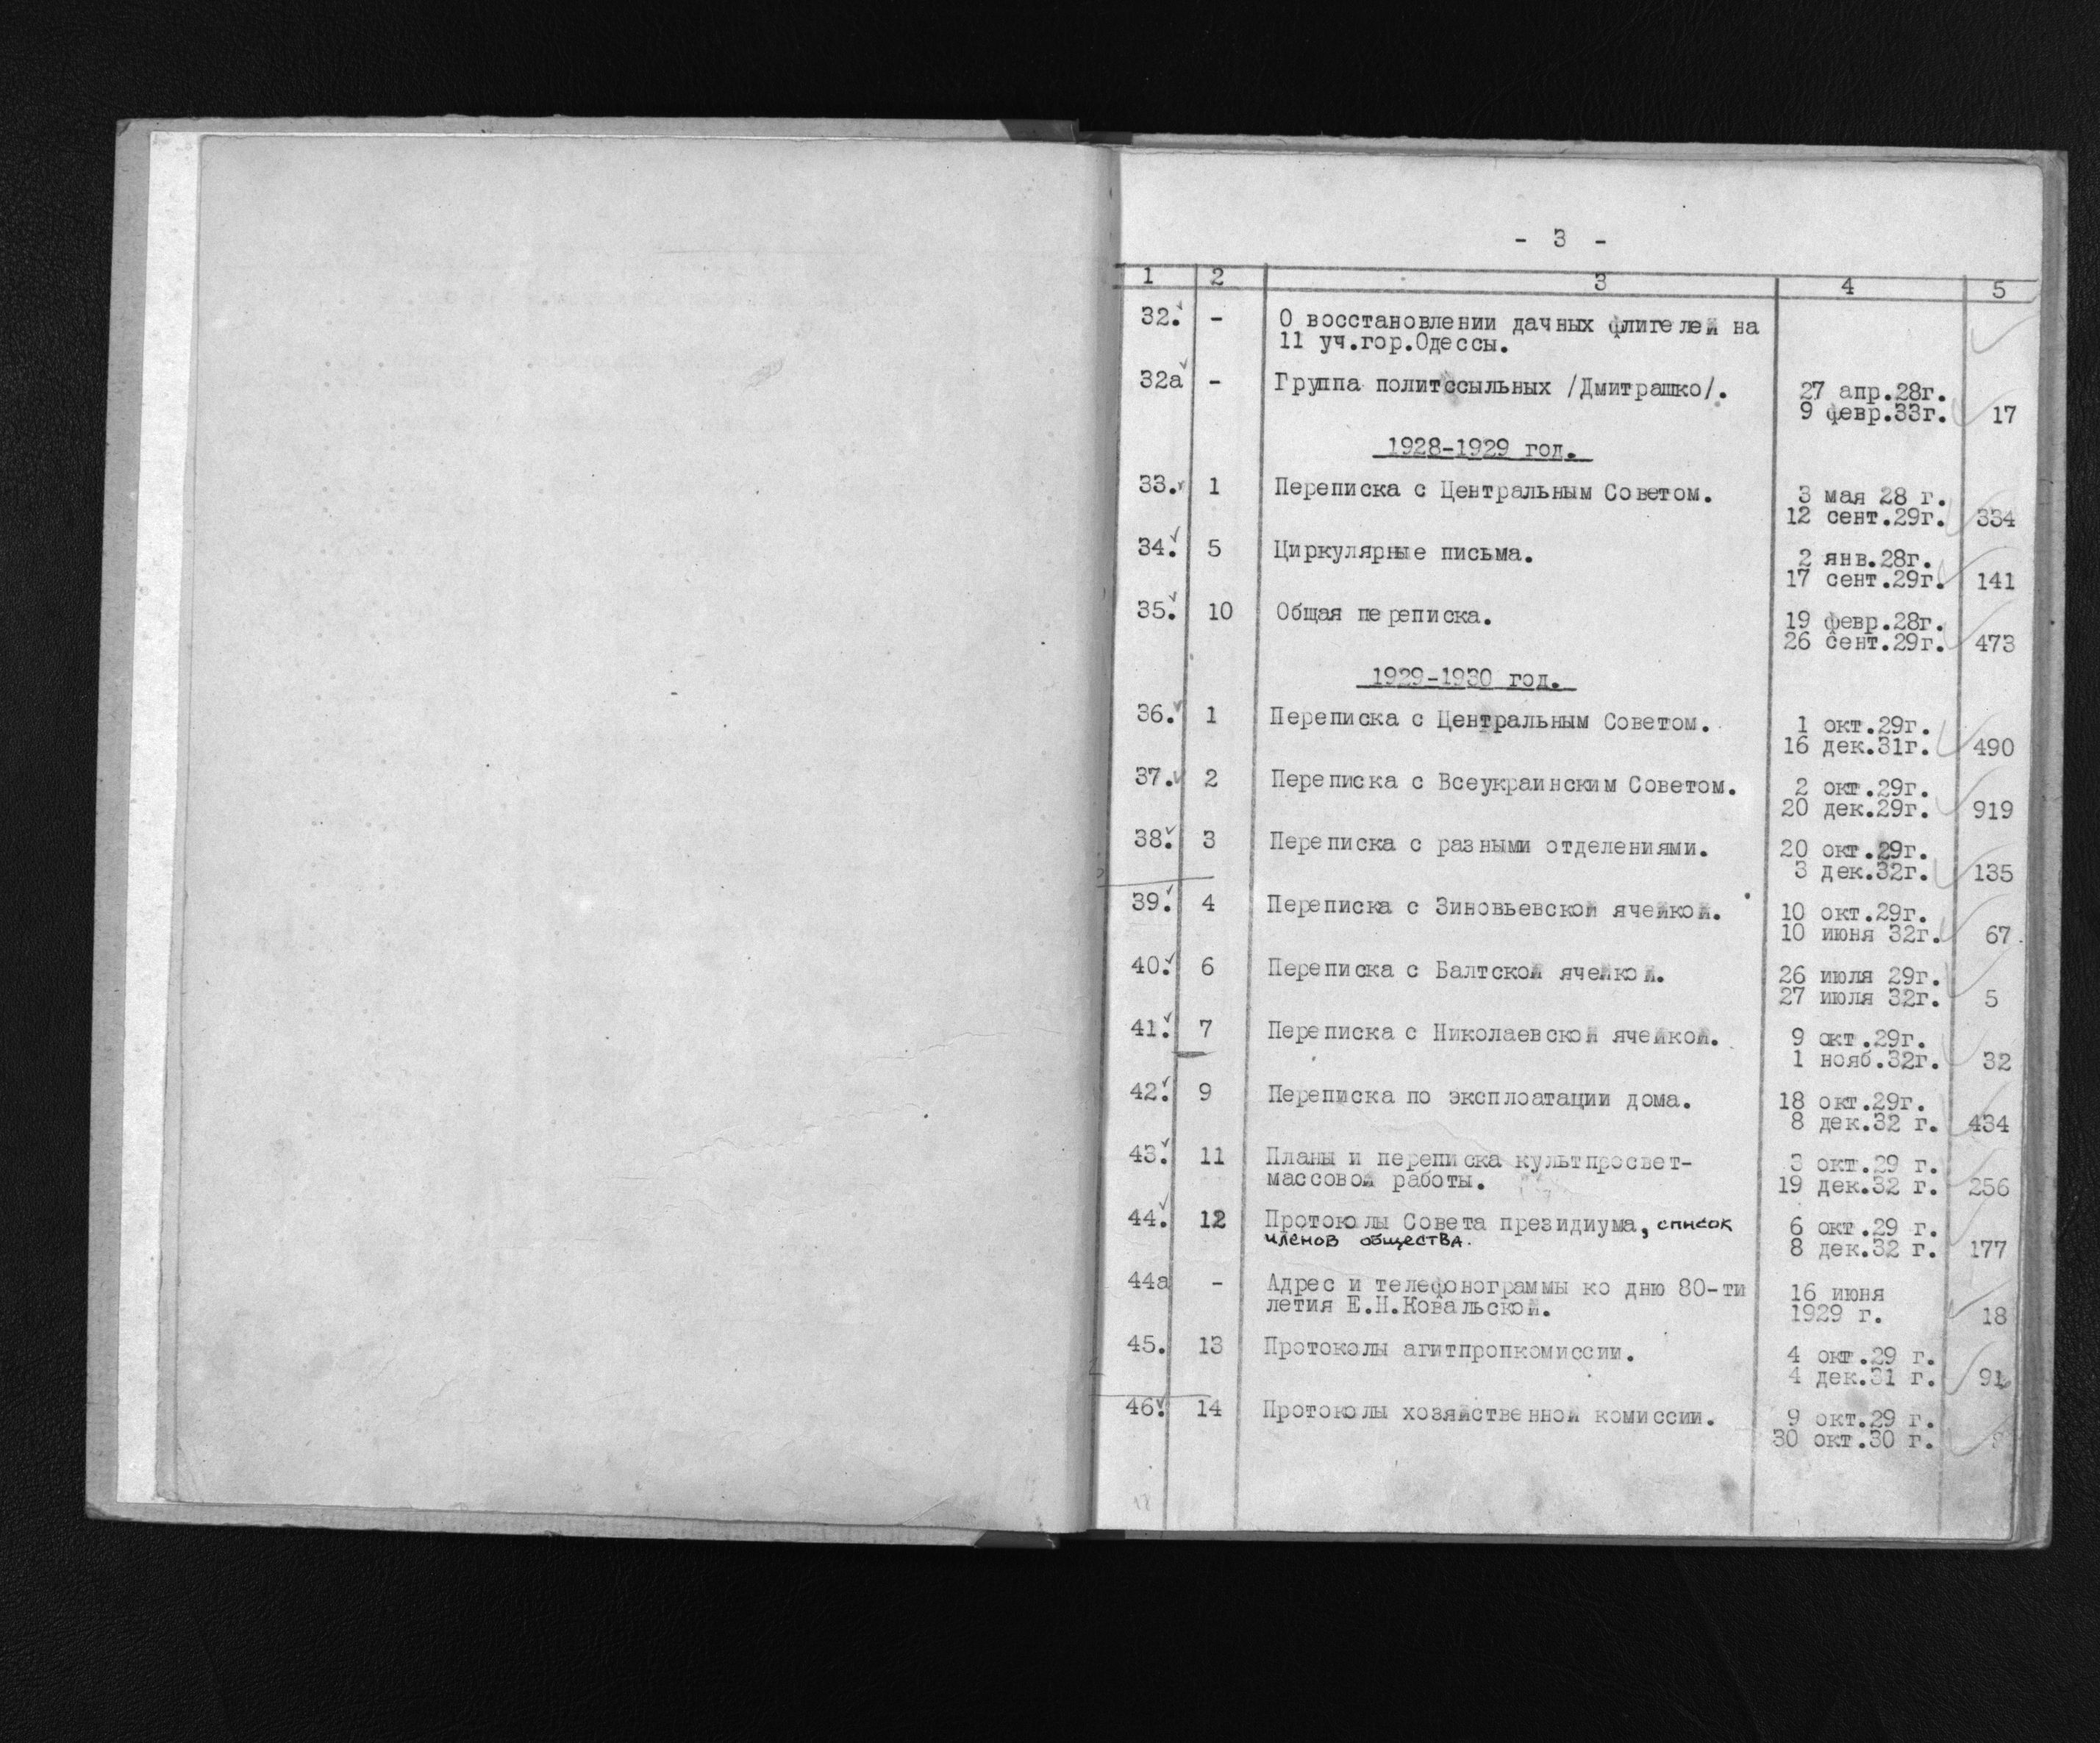 - 3 -
1 2 3 4 5
32. - О восстановлении дачных флигелей на
11 уч.гор.Одессы.
32а - Группа политссыльных /Дмитрашко/. 27 апр.28г.
9 февр.33г. 17
1928-1929 год.
33. 1 Переписка с Центральным Советом. 3 мая 28 г.
12 сент.29г. 334
34. 5 Циркулярные письма. 2 янв.28г.
17 сент.29г. 141
35. 10 Общая переписка. 19 февр.28г.
26 сент.29г. 473
1929-1930 год.
36. 1 Переписка с Центральным Советом. 1 окт.29г.
16 дек.31г. 490
37. 2 Переписка с Всеукраинским Советом. 2 окт.29г.
20 дек.29г. 919
38. 3 Переписка с разными отделениями. 20 окт.29г.
3 дек.32г. 135
39. 4 Переписка с Зиновьевской ячейкой. 10 окт.29г.
10 июня 32г. 67
40. 6 Переписка с Балтской ячейкой. 26 июля 29г.
27 июля 32г. 5
41. 7 Переписка с Николаевской ячейкой. 9 окт.29г.
1 нояб.32г. 32
42. 9 Переписка по эксплоатации дома. 18 окт.29г.
8 дек.32 г. 434
43. 11 Планы и переписка культпросвет- 3 окт.29 г.
массовой работы. 19 дек.32 г. 256
44. 12 Протоколы Совета президиума, список 6 окт.29 г.
членов общества. 8 дек.32 г. 177
44а - Адрес и телефонограммы ко дню 80-ти 16 июня
летия Е.Н.Ковальской. 1929 г. 18
45. 13 Протоколы агитпропкомиссии. 4 окт.29 г.
4 дек.31 г. 91
46. 14 Протоколы хозяйственной комиссии. 9 окт.29 г.
30 окт.30 г.